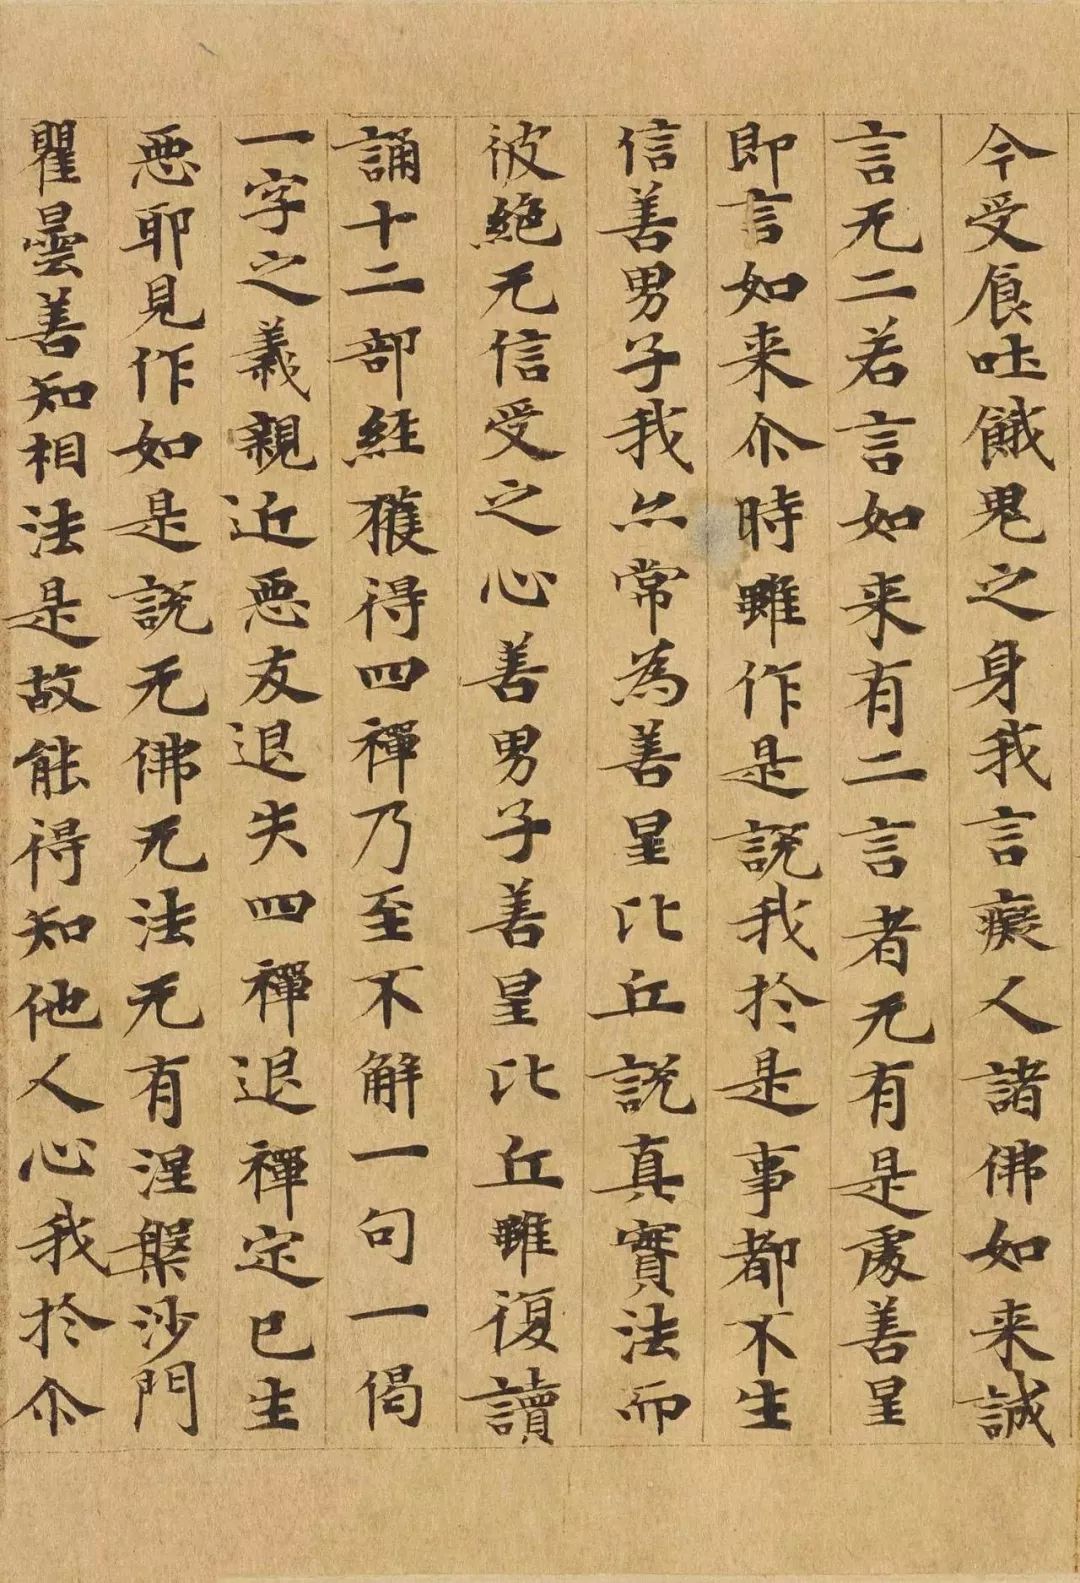 今受食吐餓鬼之身我言癡人諸佛如来誠
言无二若言如来有二言者无有是處善星
即言如来尒時雖作是說我於是事都不生
信善男子我亦常為善星比丘說真實法而
彼絕无信受之心善男子善星比丘雖復讀
誦十二部經獲得四禪乃至不解一句一偈
一字之義親近惡友退失四禪退禪定已生
惡耶見作如是說无佛无法无有涅槃沙門
瞿曇善知相法是故能得知他人心我於尒